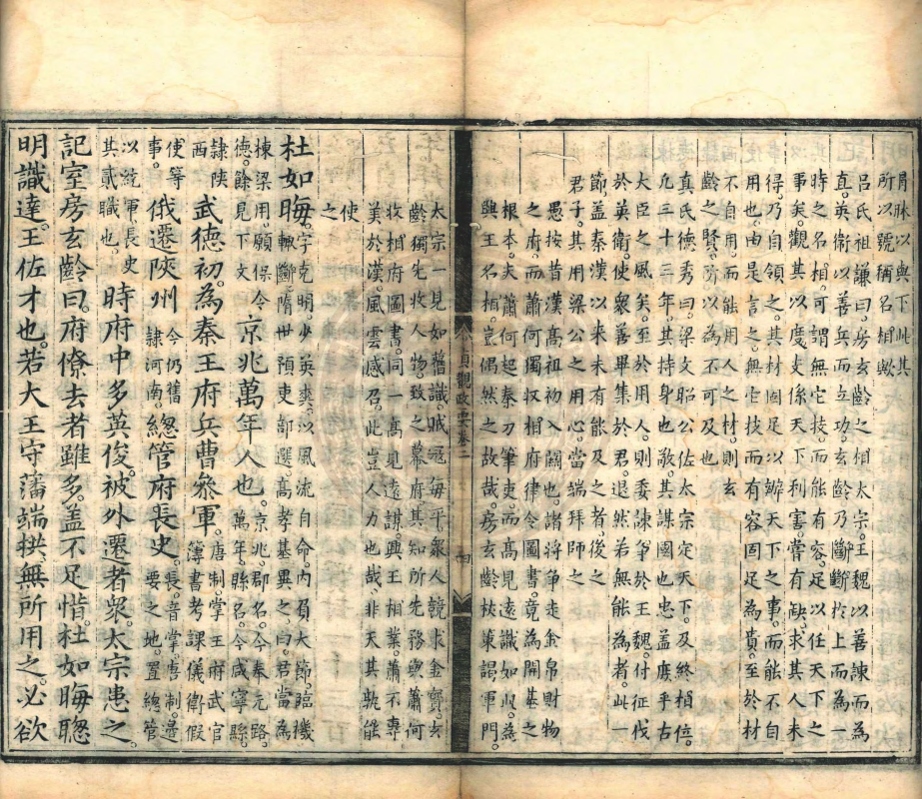 所以號稱名相歟
呂氏祖謙曰。房玄齡之相太宗。王魏以善諫而爲
真。英衛以善兵而立功。玄齡乃斷斷於上而爲一
時之名相。可謂無它技。而能有容。足以任天下之
事矣。觀其以度支係天下利害。嘗有缺。求其人未
得。乃自領之。其材固足以辦天下之事。而能不自
用也。由是言之。無它技而有容。固足爲貴。至於材
不自用。而能用人之材。則玄
齡之賢。所以爲不可及也
真氏德秀曰。梁文昭公佐太宗定天下。及終相位。
凡三十三年。其持身也敬。其許國也忠。蓋庶乎古
大臣之風矣。至於用人。則委諫爭於王魏。付征伐
於英衛。使衆善畢集於君。退然若無能爲者。此一
節。蓋秦漢以來未有能及之者。後之
君子。其用梁公之用心。當端拜師之
愚按。漢高祖初入關也。諸將爭走金帛財物
之府。而蕭何獨收相府律令圖書。竟爲開基之
根本。夫蕭何起秦刀筆吏。而高見遠識如此。茲
興王名相。豈偶然之故哉。房玄齡杖策謁軍門。
貞觀政要卷二
四
太宗一見如舊識。賊寇每平。衆人競求金寳。玄
齡獨先收人物。致之幕府。其知所先務。與蕭何
收相府圖書。同一高見遠謀。興王相業。蕭不專
美於漢。風雲感召。此豈人力也哉。非天其孰能
使之
杜如晦。字克明。少英爽。以風流自命。內負大節。臨機輒斷。隋世預吏部選。高孝基異之。曰。君當爲
棟梁用。願保令德。餘見下文京兆萬年人也。京兆。郡名。今奉元路。萬年。縣名。今咸寧縣。
隸陝西武德初。爲秦王府兵曹叅軍。唐制。掌王府武官簿書考課儀衛假
使等事。俄遷陝州今仍舊隸河南。總管府長史。長。音掌。唐制。邊要之地。置總管
以統軍。長史其貳職也。時府中多英俊。被外遷者衆。太宗患之。
記室房玄齡曰。府僚去者雖多。蓋不足惜。杜如晦聰
明識達。王佐才也。若大王守藩端拱。無所用之。必欲